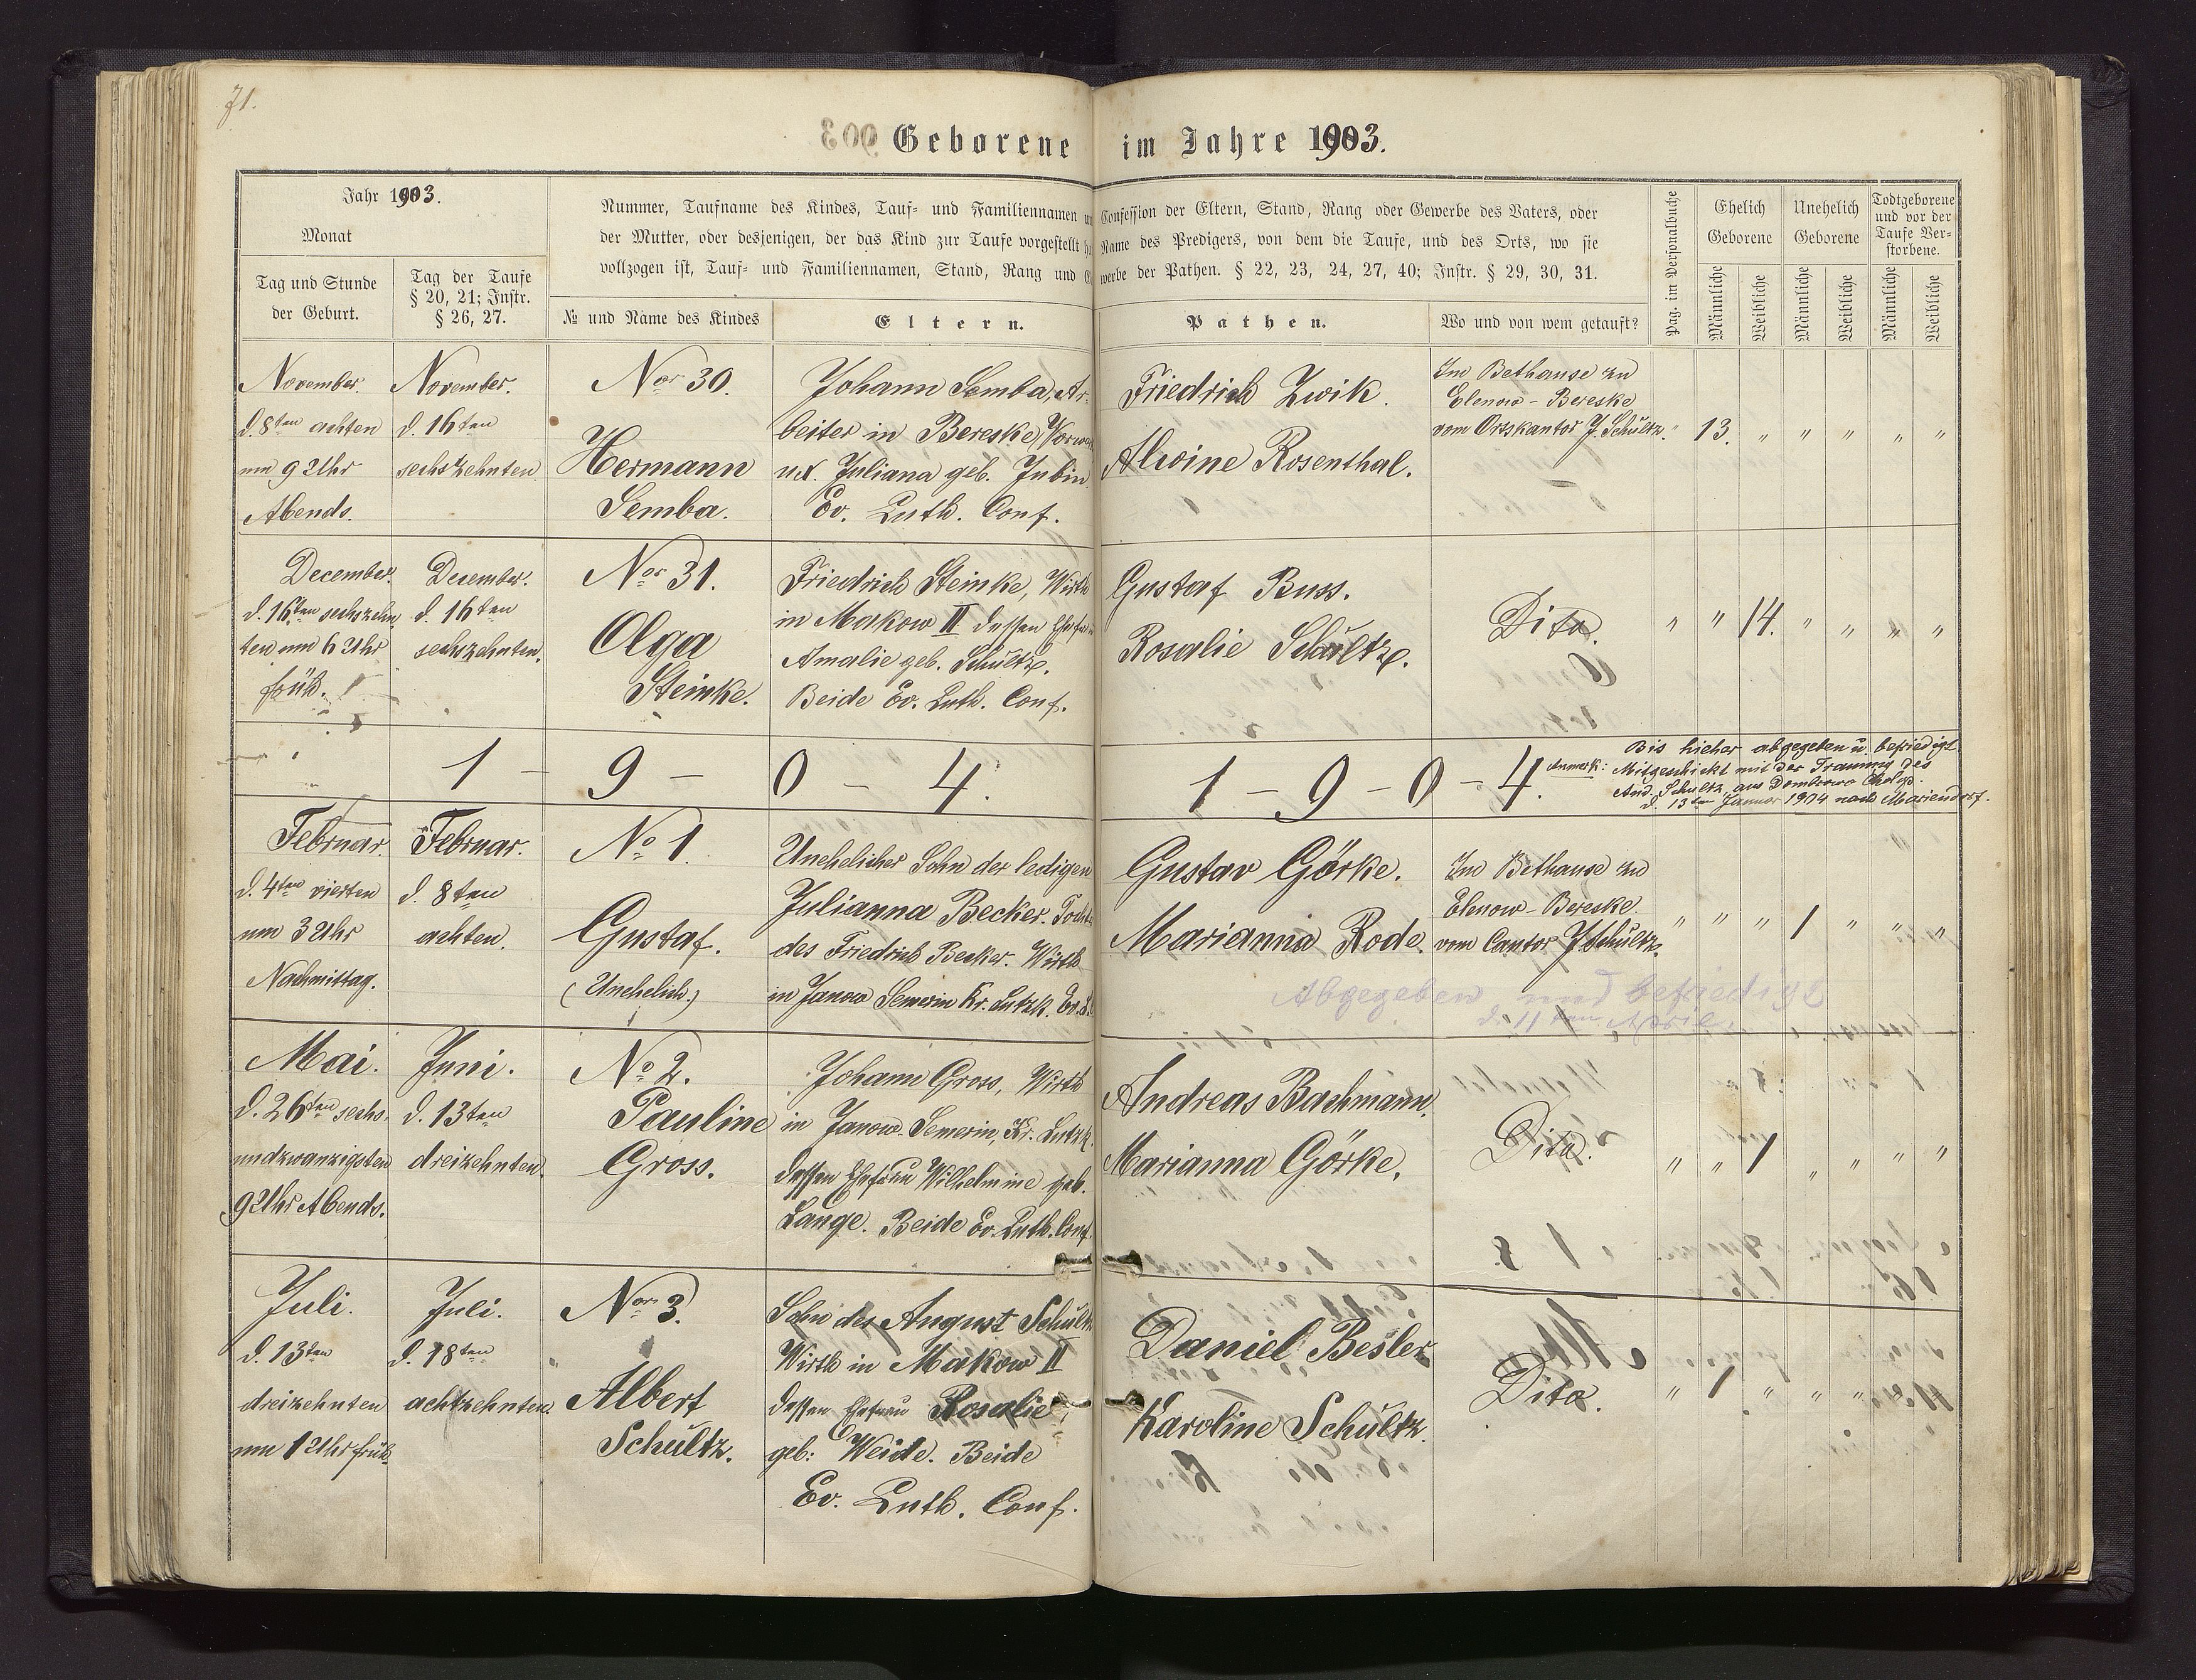 71.
Geborene im Jahre 1903.
Jahr 1903.
Monat
Tag und Stunde
der Geburt.
Tag der Taufe
§ 20, 21; Instr.
§ 26, 27.
Nummer, Taufname des Kindes, Tauf- und Familiennamen
der Mutter, oder desjenigen, der das Kind zur Taufe vorgestellt
vollzogen ist, Tauf- und Familiennamen, Stand, Rang und
№ und Name des Kindes
Eltern.
Confession der Eltern, Stand, Rang oder Gewerbe des Vaters, oder
Name des Predigers, von dem die Taufe, und des Orts, wo sie
werbe der Pathen. § 22, 23, 24, 27, 40; Instr. § 29, 30, 31.
Pathen.
Wo und von wem getauft?
Pag. im Personalbuche
Ehelich
Geborene
Unehelich
Geborene
Todtgeborene
und vor der
Taufe Ver-
storbene.
Männliche
Weibliche
Männliche
Weibliche
Männliche
Weibliche
November.
d. 8ten achten
um 9 Uhr
Abends.
November.
d. 16ten
sechszehnten
Nor 30.
Hermann
Semba.
Johann Semba, Ar-
beiter in Bereske Vorwer
u. Juliana geb. Jubin
Ev. Luth. Conf.
Friedrich Zwik.
Alwine Rosenthal.
Im Bethause zu
Elenow-Bereske
vom Ortskantor J. Schültz.
" 13. " " " " "
December.
d. 16ten sechszehn
ten um 6 Uhr
früh.
December.
d. 16ten
sechszehnten.
Nor 31.
Olga
Steinke.
Friedrich Steinke, Wirth
in Makow II dessen Ehefrau
Amalie geb. Schultz.
Beide Ev. Luth. Conf.
Gustaf Buss.
Rosalie Schultz.
Dito.
" " 14. " " " "
1 - 9 - 0 - 4.
1 - 9 - 0 - 4.
Anmerk: Bis hieher abgegeben u. befriedigt
Mitgeschickt mit der Trauung des
And. Schultz aus Dombrowo
d. 13ten Januar 1904 nach Mariendorf.
Februar.
d. 4ten vierten
um 3 Uhr
Nachmittag.
Februar.
d. 8ten
achten.
No 1.
Gustaf.
(Unehelich.)
Unehelicher Sohn der ledigen
Julianna Becker. Tocht
des Friedrich Becker. Wirth
in Janow Semerin Kr. Lutzk. Ev. L.
Gustav Görke.
Marianna Rode.
Im Bethause zu
Elenow-Bereske.
vom Cantor J Schültz.
" " " 1 " " "
Abgegeben und befriedigt
d. 11ten April.
Mai.
d. 26ten sechs
undzwanzigsten
9 Uhr Abends.
Juni.
d. 13ten
dreizehnten.
No 2.
Pauline
Gross.
Johann Gross, Wirth
in Janow-Semerin, Kr. Lutzk.
dessen Ehefrau Wilhelmine geb.
Lange. Beide Ev. Luth. Conf.
Andreas Bachmann.
Marianna Görke.
Dito.
" " 1 " " " "
Juli.
d. 13ten
dreizehnten
um 1 Uhr früh
Juli.
d. 18ten
achtzehnten.
Nor 3.
Albert
Schültz.
Sohn des August Schült
Wirth in Makow II
dessen Ehefrau Rosalie
geb: Weide. Beide
Ev. Luth. Conf.
Daniel Besler
Karoline Schültz.
Dito.
" 1 " " " " "